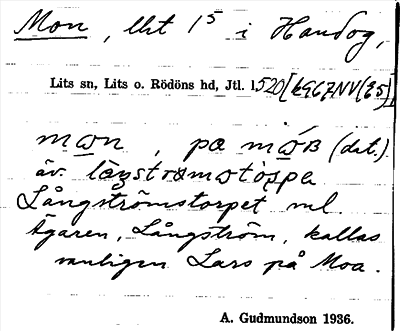 Mon, lht 1⁵ i Handog,
Lits sn, Lits o. Rödöns hd, Jtl. 1520 [kg67NV(ES)]
mɷn, pɑ mɷ́ʙ (dat.).
äv. lɑŋstrɷmstɔrpɑ
Långströmstorpet ml.
Ägaren, Långström, kallas
vanligen Lars på Moa.
A. Gudmundson 1936.